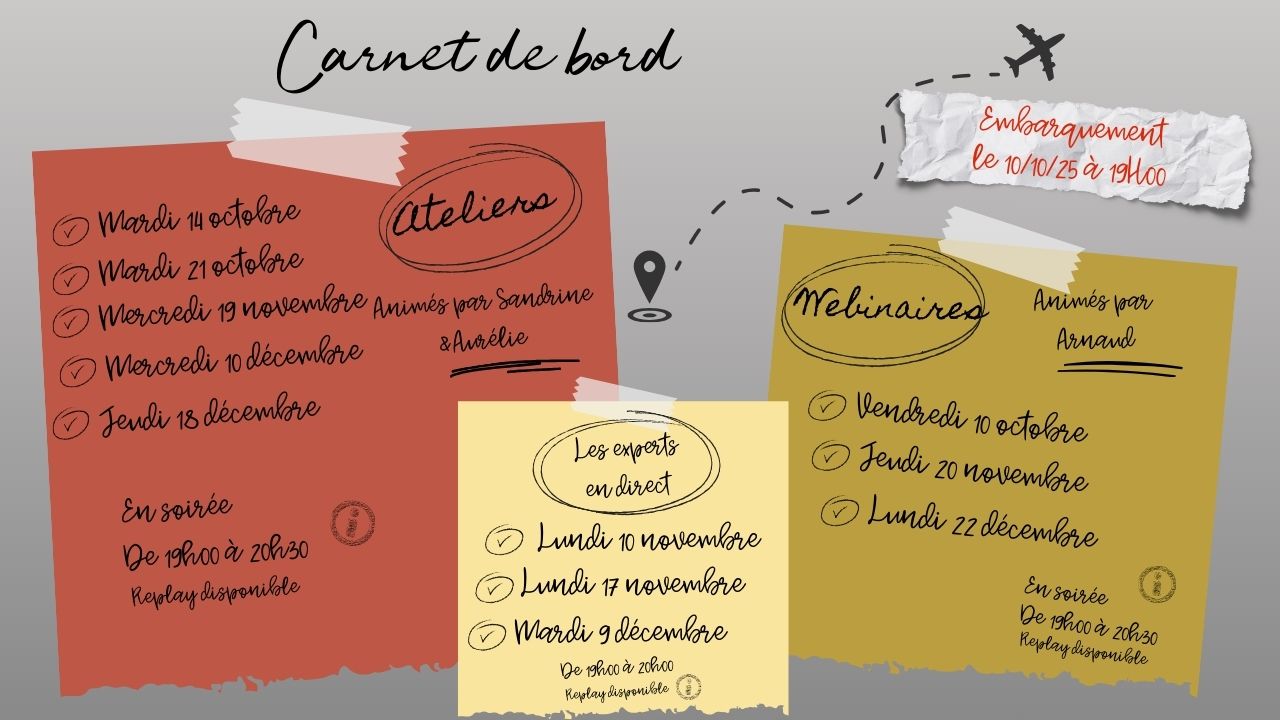 Carnet de bord
Embarquement
le 10/10/25 à 19H00
Ateliers
Animés par Sandrine
&Aurélie
Mardi 14 octobre
Mardi 21 octobre
Mercredi 19 novembre
Mercredi 10 décembre
Jeudi 18 décembre
En soirée
De 19h00 à 20h30
Replay disponible
Les experts
en direct
Lundi 10 novembre
Lundi 17 novembre
Mardi 9 décembre
De 19h00 à 20h00
Replay disponible
Webinaires
Animés par
Arnaud
Vendredi 10 octobre
Jeudi 20 novembre
Lundi 22 décembre
En soirée
De 19h00 à 20h30
Replay disponible